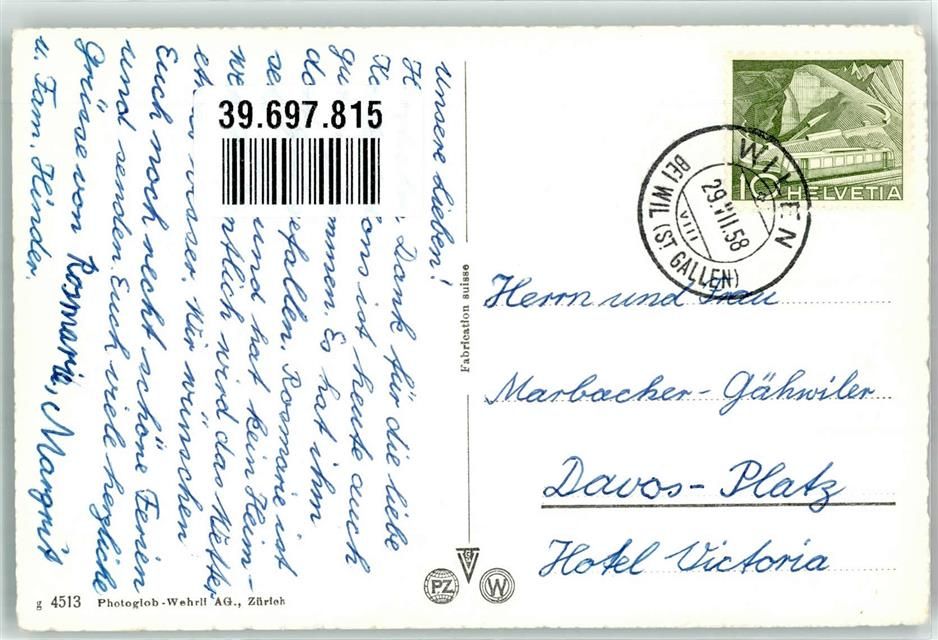 Unsere Lieben!
H Dank für die liebe
K ons ist heute auch
gu mmen. Es hat ihm
do efallen. Rosmarie ist
se und hat kein Heim-
we ntlich wird das Wetter
et s besser. Wir wünschen
Euch noch recht schöne Ferien
und senden Euch viele herzliche
Grüsse von Rosmarie, Margrit
u. Fam. Hinder.
39.697.815
Fabrication suisse
HELVETIA
10
WILEN
BEI WIL (ST. GALLEN)
29.VII.58
Herrn und Frau
Marbacher-Gähwiler
Davos-Platz
Hotel Victoria
PZ
W
g 4513 Photoglob-Wehrli AG., Zürich